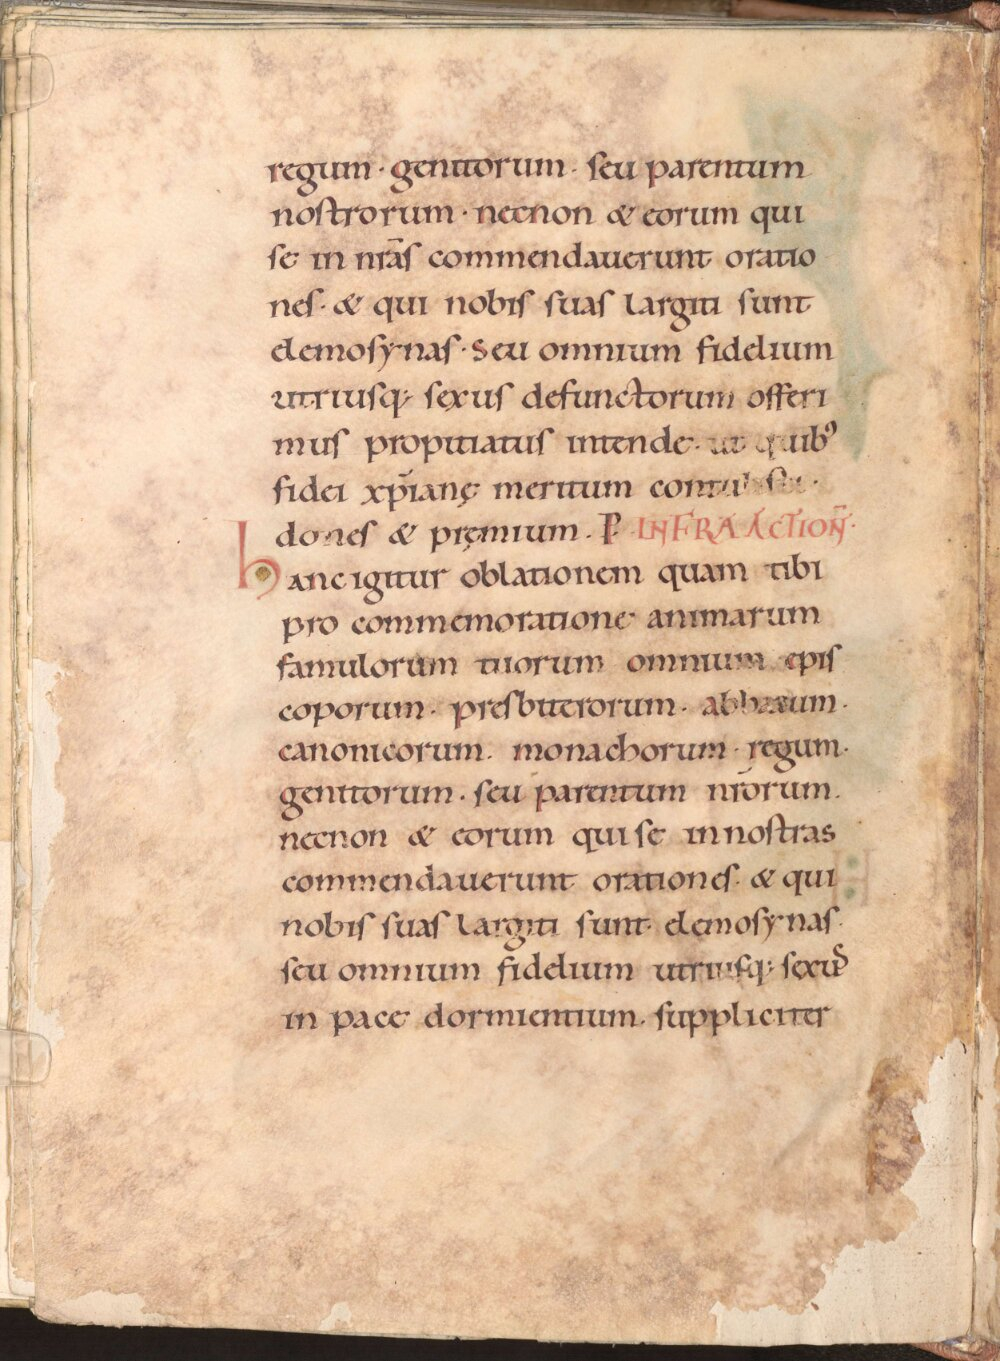 regum · genitorum · seu parentum
nostrorum · necnon & eorum qui
se in nr̄as commendauerunt oratio
nes · & qui nobis suas largiti sunt
elemosynas · Seu omnium fidelium
utriusq; sexus defunctorum offeri
mus propitiatus intende · ut quib᾿
fidei xp̄ianę meritum contulisti ·
dones & pręmium · P INFRA ACTIOÑ ·
hanc igitur oblationem quam tibi
pro commemoratione animarum
famulorum tuorum omnium epis
coporum · presbiterorum · abbatum ·
canonicorum · monachorum · regum ·
genitorum · seu parentum nr̄orum ·
necnon & eorum qui se in nostras
commendauerunt orationes · & qui
nobis suas largiti sunt elemosynas ·
seu omnium fidelium utriusq; sexus
in pace dormientium · suppliciter